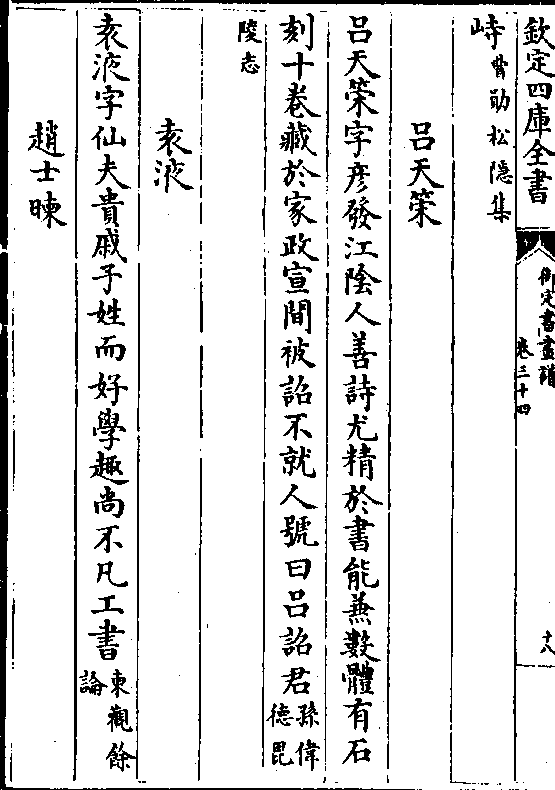 欽定四庫全書
御定書畫譜
卷三十四
十八
峙曹勛松隱集
呂天策
呂天策字彦發江隂人善詩尤精於書能兼數體有石
刻十卷藏於家政宣間被詔不就人號曰呂詔君孫偉德毘
陵志
袁液
袁液字仙夫貴戚子姓而好學趣尚不凡工書東觀餘論
趙士暕